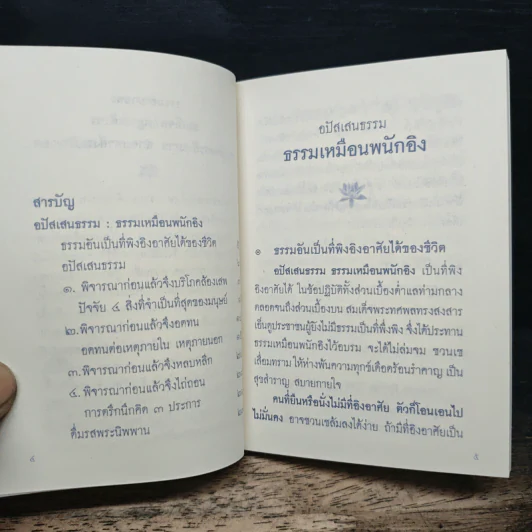 สารบัญ
อปัสเสนธรรม : ธรรมเหมือนพนักอิง
ธรรมอันเป็นที่พิงอิงอาศัยได้ของชีวิต
อปัสเสนธรรม
๑. พิจารณาก่อนแล้วจึงบริโภคส้องเสพ
ปัจจัย ๔ สิ่งที่จำเป็นที่สุดของมนุษย์
๒. พิจารณาก่อนแล้วจึงอดทน
อดทนต่อเหตุภายใน เหตุภายนอก
๓. พิจารณาก่อนแล้วจึงหลบหลีก
๔. พิจารณาก่อนแล้วจึงไถ่ถอน
การตรึกนึกคิด ๓ ประการ
ดื่มรสพระนิพพาน
๔
อปัสเสนธรรม
ธรรมเหมือนพนักอิง
๑ ธรรมอันเป็นที่พิงอิงอาศัยได้ของชีวิต
อปัสเสนธรรม ธรรมเหมือนพนักอิง เป็นที่พิง
อิงอาศัยได้ ในข้อปฏิบัติทั้งส่วนเบื้องต่ำแลท่ามกลาง
ตลอดจนถึงส่วนเบื้องบน สมเด็จพระทศพลทรงสงสาร
เอ็นดูประชาชนผู้ยังไม่มีธรรมเป็นที่พึ่งพิง จึงได้ประทาน
ธรรมเหมือนพนักอิงไว้อบรม จะได้ไม่ล่มจม ซวนเซ
เสื่อมทราม ให้ห่างพ้นความทุกข์เดือดร้อนรำคาญ เป็น
สุขสำราญ สบายกายใจ
คนที่ยืนหรือนั่งไม่มีที่อิงอาศัย ตัวก็โอนเอนไป
ไม่มั่นคง อาจซวนเซล้มลงได้ง่าย ถ้ามีที่อิงอาศัยเป็น
๕